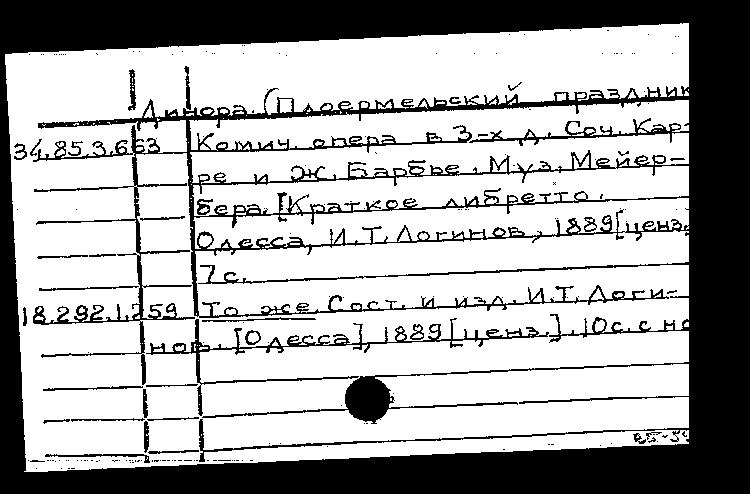 Динора. (Плоермельский праздник
34.85.3.663 Комич. опера в 3-х д. Соч. Кар-
ре и Ж. Барбье. Муз. Мейер-
бера. [Краткое либретто.
Одесса, И.Т. Логинов, 1889 [ценз.
7 с.
18.292.1.259 То же. Сост. и изд. И.Т. Логи-
нов. [Одесса], 1889 [ценз.]. 10 с. с но